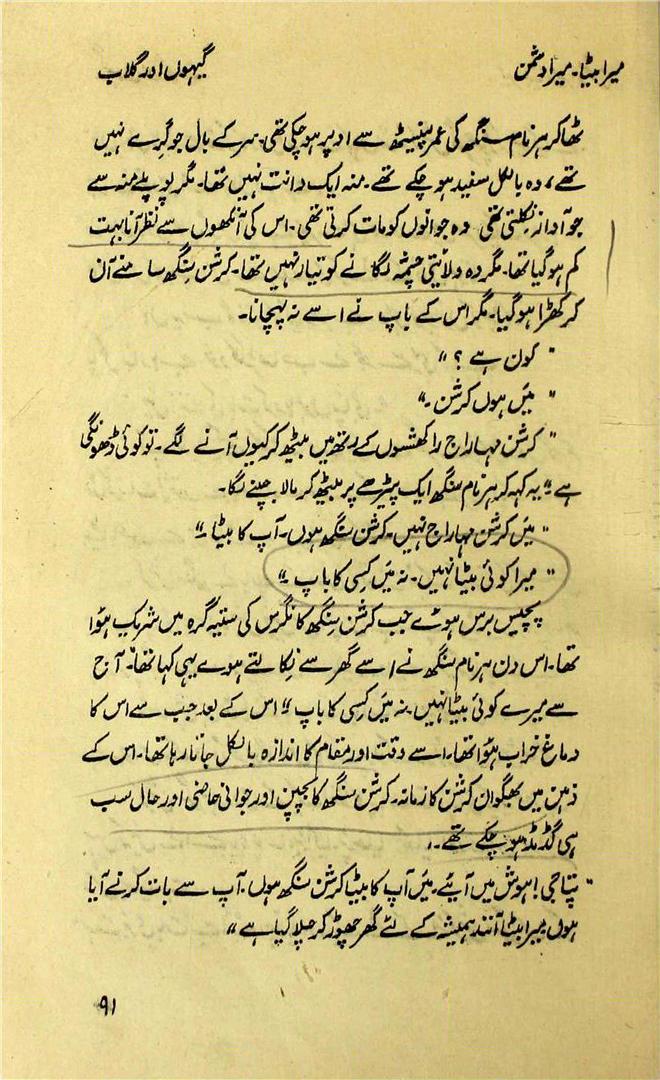 میرا بیٹا۔ میرا دشمن
گیہوں اور گلاب
ٹھاکر ہرنام سنگھ کی عمر پنسیٹھ سے اوپر ہو چکی تھی۔ سر کے بال جو گرے نہیں
تھے، وہ بالکل سفید ہو چکے تھے۔ منہ ایک دانت نہیں تھا۔ مگر پوپلے منہ سے
جو آواز نکلتی تھی وہ جوانوں کو مات کرتی تھی۔ اس کی آنکھوں سے نظر آنا بہت
کم ہو گیا تھا۔ مگر وہ ولایتی چشمہ لگانے کو تیار نہیں تھا۔ کرشن سنگھ سامنے آن
کر کھڑا ہو گیا۔ مگر اس کے باپ نے اسے نہ پہچانا۔
" کون ہے ؟ "
" میں ہوں کرشن ۔"
" کرشن مہاراج راکھشسوں کے رتھ میں بیٹھ کر کیوں آنے لگے۔ تو کوئی ڈھونگی
ہے " یہ کہہ کر ہرنام سنگھ ایک پیڑھے پر بیٹھ کر مالا جپنے لگا۔
" میں کرشن مہاراج نہیں۔ کرشن سنگھ ہوں۔ آپ کا بیٹا ۔"
" میرا کوئی بیٹا نہیں۔ نہ میں کسی کا باپ ۔"
پچیس برس ہوئے جب کرشن سنگھ کانگرس کی ستیہ گرہ میں شریک ہؤا
تھا۔ اس دن ہرنام سنگھ نے اسے گھر سے نکالتے ہوے یہی کہا تھا۔" آج
سے میرے کوئی بیٹا نہیں۔ نہ میں کسی کا باپ " اس کے بعد جب سے اس کا
دماغ خراب ہؤا تھا۔ اسے وقت اور مقام کا اندازہ بالکل جاتا رہا تھا۔ اس کے
ذہن میں بھگوان کرشن کا زمانہ۔ کرشن سنگھ کا بچپن اور جوانی ماضی اور حال سب
ہی گڈمڈ ہو چکے تھے۔
" پتاجی! ہوش میں آیئے۔ میں آپ کا بیٹا کرشن سنگھ ہوں۔ آپ سے بات کرنے آیا
ہوں میرا بیٹا آنند ہمیشہ کے لئے گھر چھوڑ کر چلا گیا ہے "
۹۱